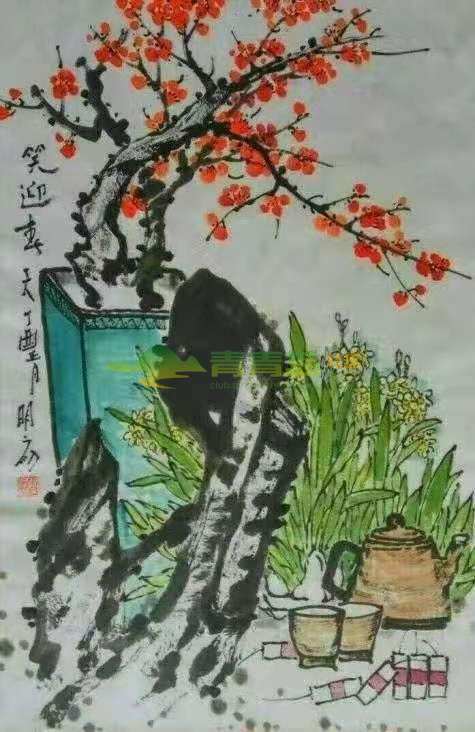 笑迎春天丁酉月明
青青
club.